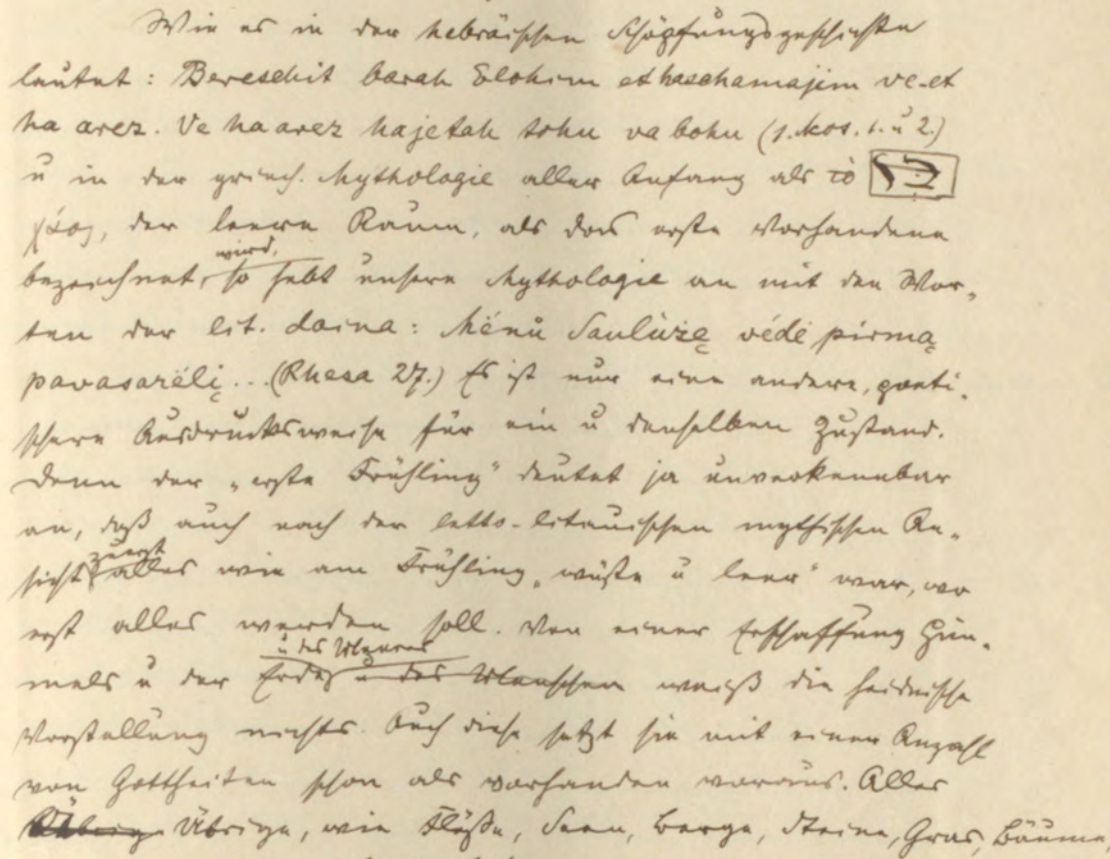 Wie es in der hebräischen Schöpfungsgeschichte
lautet: Bereschit barah Elohim et haschamajim ve-et
ha arez. Ve haarez hajetah tohu va bohu (1. Mos. 1. u 2.)
u in der griech. Mythologie aller Anfang als τὸ
χάος, der leere Raum, als das erste Vorhandene
bezeichnet wird, so hebt unsere Mythologie an mit den Wor-
ten der lit. daina: Ménů Saulùżę védė pirmą
pavasarélį... (Rhesa 27.) Es ist nur eine andere, poeti-
schere Ausdrucksweise für ein u denselben Zustand.
Denn der „erste Frühling" deutet ja unverkennbar
an, daß auch nach der letto-litauischen mythischen An-
sicht zuerst alles wie am Frühling „wüste u leer" war, wo
erst alles werden soll. Von einer Erschaffung Him-
mels u der Erde u des Menschen weiß die heidnische
Vorstellung nichts. Auch diese setzt sie mit einer Anzahl
von Gottheiten schon als vorhanden voraus. Alles
Übrige, wie Flüße, Seen, Berge, Steine, Gras, Bäume,